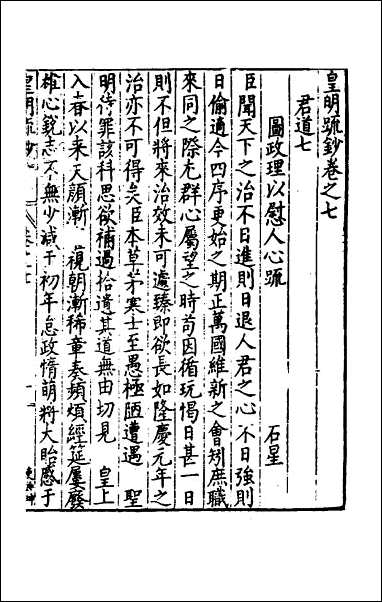 皇明疏鈔卷之七
君道七
圖政理以慰人心疏
石星
臣聞天下之治不日進則日退人君之心不日強則
日偷適今四序更始之期正萬國維新之會矧庶職
來同之際尤群心屬望之時苟因循玩愒日甚一日
則不但將來治效未可遽臻即欲長如隆慶元年之
治亦不可得矣臣本草茅寒士至愚極陋遭遇 聖
明待罪該科思欲補過拾遺其道無由切見 皇上
入春以來天顏漸 視朝漸稀章奏頻煩經筵屢廢
雄心銳志不無少減于初年怠政惰萌將大貽慼于
皇明疏鈔
卷之七
一